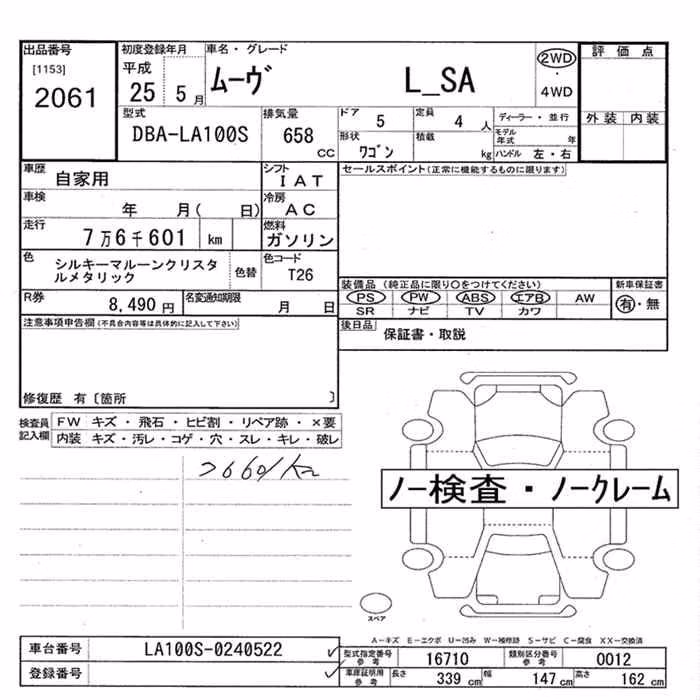 出品番号
[1153]
2061
初度登録年月
平成
25 5 月
車名・グレード
ムーヴ L_SA
2WD
・
4WD
評価点
外装 内装
型式
DBA-LA100S
排気量
658
CC
ドア 5
定員 4 人
形状 ワゴン
積載 kg
ディーラー・並行
モデル年式 年
ハンドル 左・右
車歴 自家用
シフト IAT
車検 年 月( 日)
冷房 AC
走行 7万6千601 km
燃料 ガソリン
色 シルキーマルーンクリスタ
ルメタリック
色替
色コード T26
R券 8,490 円
名変通知期限 月 日
セールスポイント(正常に機能するものに限ります)
装備品(純正品に限り○をつけてください)
PS PW ABS エアB AW
SR ナビ TV カワ
新車保証書
有・無
後日品 保証書・取説
注意事項申告欄(不具合内容等は具体的に記入して下さい)
修復歴 有〔箇所 〕
検査員
記入欄
FW キズ・飛石・ヒビ割・リペア跡・×要
内装 キズ・汚レ・コゲ・穴・スレ・キレ・破レ
ノー検査・ノークレーム
スペア
A-キズ E-エクボ U-凹み W-補修跡 S-サビ C-腐食 XX-交換済
車台番号 LA100S-0240522
登録番号
型式指定番号
参考
16710
類別区分番号
参考
0012
車庫証明用
参考
長さ 339 cm
幅 147 cm
高さ 162 cm